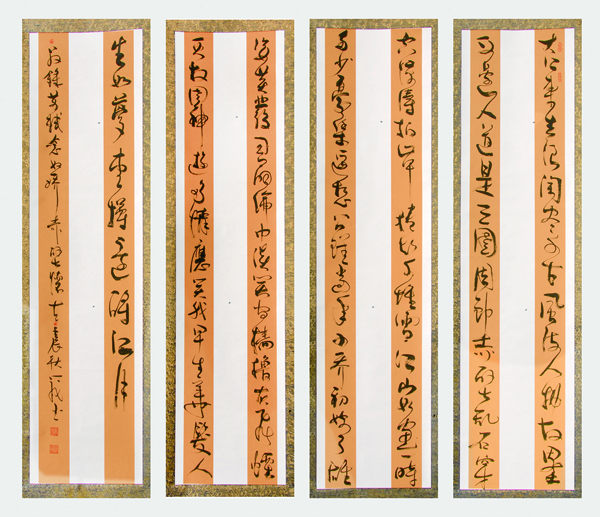 大江東去浪淘盡千古風流人物故壘
西邊人道是三國周郎赤壁亂石穿
空驚濤拍岸捲起千堆雪江山如畫一時
多少豪傑遙想公瑾當年小喬初嫁了雄
姿英發羽扇綸巾談笑間檣櫓灰飛煙
滅故國神遊多情應笑我早生華髮人
生如夢一樽還酹江月
右錄蘇軾念奴嬌赤壁懷古壬辰秋